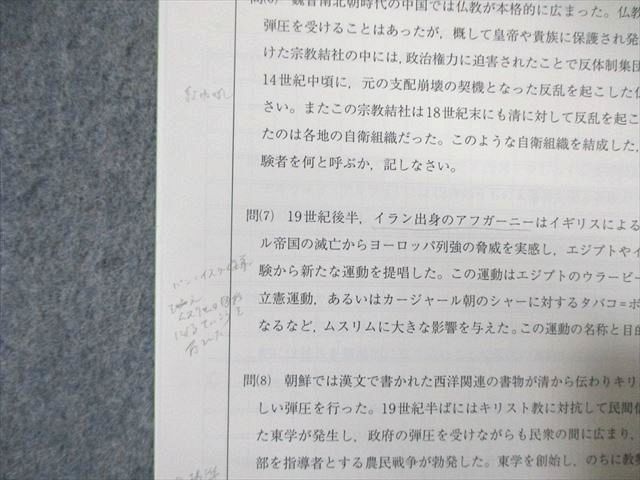 問(6) 魏晋南北朝時代の中国では仏教が本格的に広まった。仏教
弾圧を受けることはあったが，概して皇帝や貴族に保護され発
けた宗教結社の中には，政治権力に迫害されたことで反体制集団
14世紀中頃に，元の支配崩壊の契機となった反乱を起こした
さい。またこの宗教結社は18世紀末にも清に対して反乱を起こ
たのは各地の自衛組織だった。このような自衛組織を結成した，
験者を何と呼ぶか，記しなさい。
問(7) 19世紀後半，イラン出身のアフガーニーはイギリスによる
ル帝国の滅亡からヨーロッパ列強の脅威を実感し，エジプトやイ
験から新たな運動を提唱した。この運動はエジプトのウラービー
立憲運動，あるいはカージャール朝のシャーに対するタバコ=ボ
なるなど，ムスリムに大きな影響を与えた。この運動の名称と目的
パン=イスラーム主義
問(8) 朝鮮では漢文で書かれた西洋関連の書物が清から伝わりキリ
しい弾圧を行った。19世紀半ばにはキリスト教に対抗して民間信
た東学が発生し，政府の弾圧を受けながらも民衆の間に広まり，
部を指導者とする農民戦争が勃発した。東学を創始し，のちに教